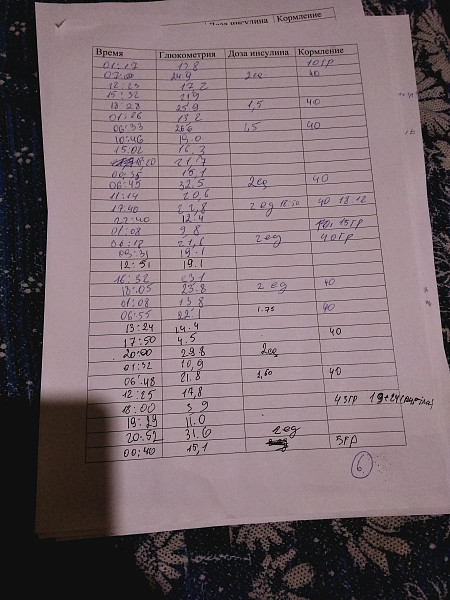 Доза инсулина Кормление
Время Глюкометрия Доза инсулина Кормление
01:17 13.8 10гр
07:00 24.9 2ед 40
12:23 17,2
15:32 21.9
18:28 25,9 1,5 40
01:26 13,2
06:33 26.6 1,5 40
10:46 19.0
15.02 16,3
18:20 21,7
00,35 15,1
06:45 32.5 2ед 40
11:14 20.6
17:40 22,8 2 ед 18:10 40 18:12
22:40 12.4
01:08 9.8 15гр
06:18 21,6 2ед 40гр
09:31 19.1
12:51 19.1
16:32 23.1
18:05 23.8 2 ед 40
01:08 13.8
06:55 22.1 1.75 40
13:24 14.4
17:50 4.5 40
20:00 29.8 2ед
01:32 10,9
06:48 21.8 1,60 40
12:25 17,8
18:00 3.9 43гр
19:29 11.0
20:52 31.6 2ед
00:40 15,1 5гр
6.